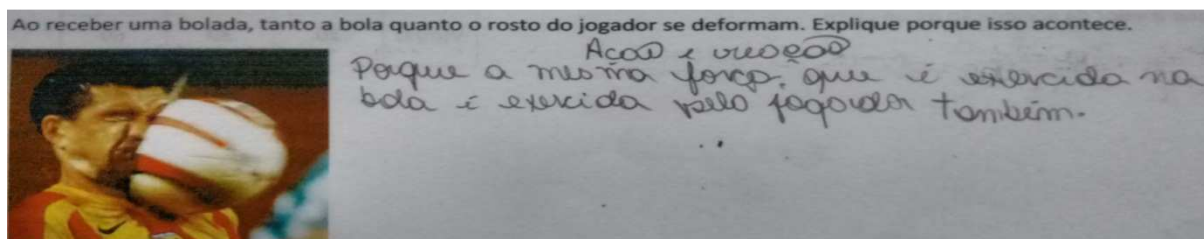 Ao receber uma bolada, tanto a bola quanto o rosto do jogador se deformam. Explique porque isso acontece.
Acao e reação
Porque a mesma força, que é exercida na
bola é exercida pelo jogador também.